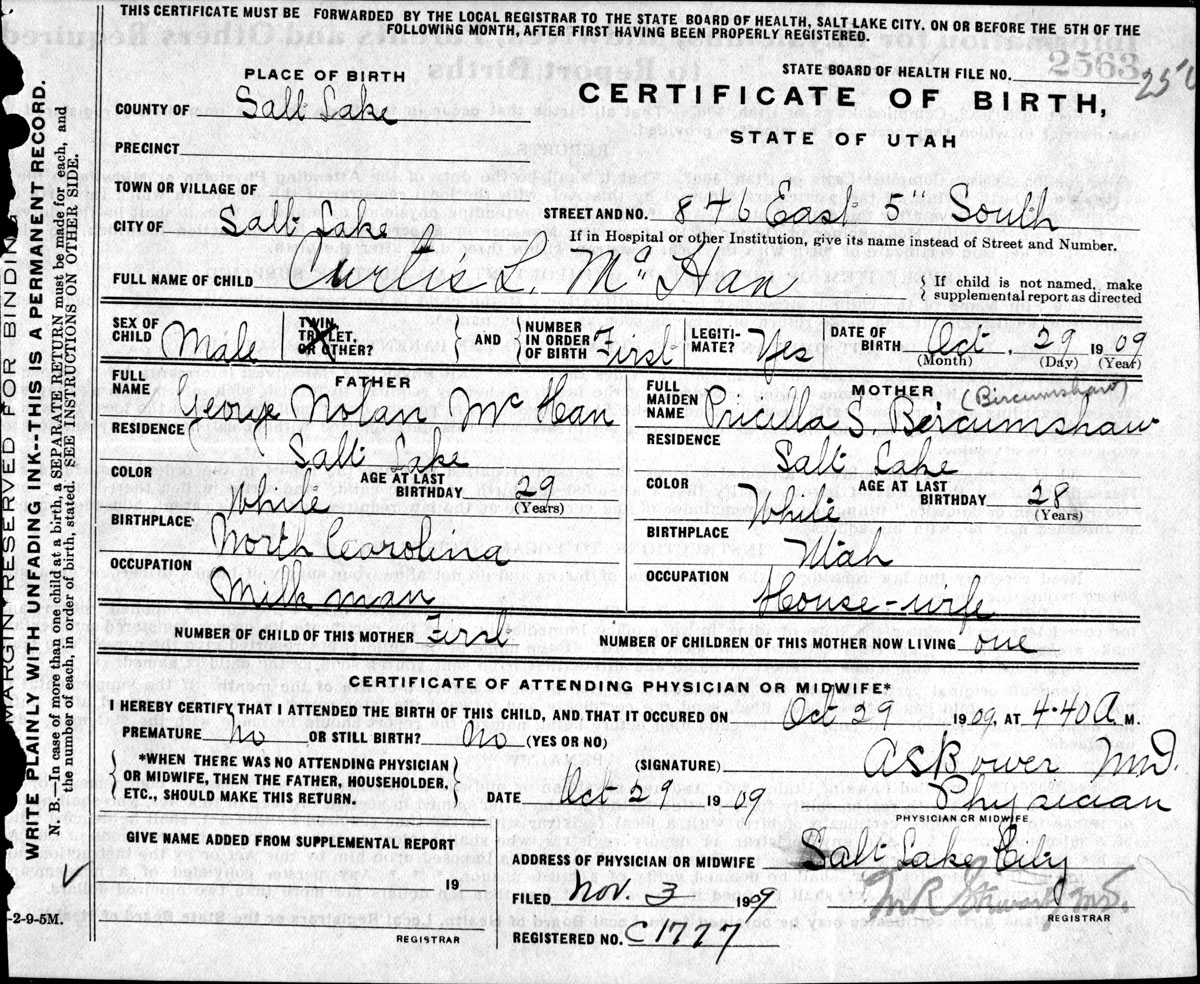 THIS CERTIFICATE MUST BE FORWARDED BY THE LOCAL REGISTRAR TO THE STATE BOARD OF HEALTH, SALT LAKE CITY, ON OR BEFORE THE 5TH OF THE
FOLLOWING MONTH, AFTER FIRST HAVING BEEN PROPERLY REGISTERED.
MARGIN RESERVED FOR BINDING
WRITE PLAINLY WITH UNFADING INK--THIS IS A PERMANENT RECORD.
N. B.—In case of more than one child at a birth, a SEPARATE RETURN must be made for each, and
the number of each, in order of birth, stated. SEE INSTRUCTIONS ON OTHER SIDE.
PLACE OF BIRTH
STATE BOARD OF HEALTH FILE NO.
2563
COUNTY OF Salt Lake
CERTIFICATE OF BIRTH,
STATE OF UTAH
PRECINCT
TOWN OR VILLAGE OF
CITY OF Salt Lake
STREET AND NO. 846 East 5" South
If in Hospital or other Institution, give its name instead of Street and Number.
FULL NAME OF CHILD Curtis L. Mc Han
{ If child is not named, make
supplemental report as directed
SEX OF CHILD Male
TWIN, TRIPLET, OR OTHER?
} AND {
NUMBER IN ORDER OF BIRTH First
LEGITI-MATE? Yes
DATE OF BIRTH Oct, 29 1909
(Month) (Day) (Year)
FATHER
FULL NAME George Nolan Mc Han
RESIDENCE Salt Lake
COLOR White
AGE AT LAST BIRTHDAY 29 (Years)
BIRTHPLACE North Carolina
OCCUPATION Milk man
MOTHER
(Bircumshaw)
FULL MAIDEN NAME Pricilla S. Bercumshaw
RESIDENCE Salt Lake
COLOR White
AGE AT LAST BIRTHDAY 28 (Years)
BIRTHPLACE Utah
OCCUPATION House-wife
NUMBER OF CHILD OF THIS MOTHER First
NUMBER OF CHILDREN OF THIS MOTHER NOW LIVING one
CERTIFICATE OF ATTENDING PHYSICIAN OR MIDWIFE*
I HEREBY CERTIFY THAT I ATTENDED THE BIRTH OF THIS CHILD, AND THAT IT OCCURED ON Oct 29 1909, AT 4.40 A M.
PREMATURE No OR STILL BIRTH? No (YES OR NO)
{ *WHEN THERE WAS NO ATTENDING PHYSICIAN
OR MIDWIFE, THEN THE FATHER, HOUSEHOLDER,
ETC., SHOULD MAKE THIS RETURN. }
(SIGNATURE) A S Bower M.D.
DATE Oct 29 1909
Physician
PHYSICIAN OR MIDWIFE.
GIVE NAME ADDED FROM SUPPLEMENTAL REPORT
ADDRESS OF PHYSICIAN OR MIDWIFE Salt Lake City
19
FILED Nov. 3 1909
REGISTRAR
2-9-5M.
REGISTRAR
REGISTERED NO. C1777